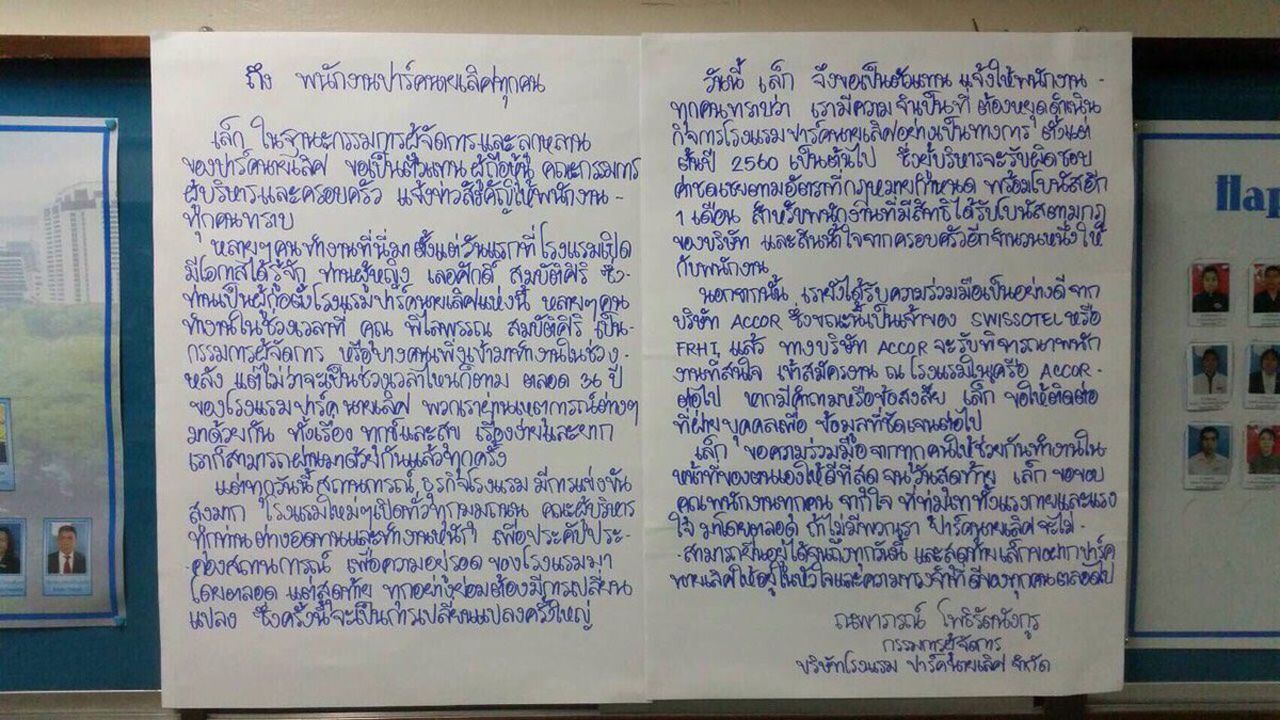 ถึง พนักงานปาร์คนายเลิศทุกคน
เล็ก ในฐานะกรรมการผู้จัดการและลูกหลาน
ของปาร์คนายเลิศ ขอเป็นตัวแทน ผู้ถือหุ้น คณะกรรมการ
ผู้บริหารและครอบครัว แจ้งข่าวสำคัญให้พนักงาน -
ทุกคนทราบ
หลายๆคนทำงานที่นี่มาตั้งแต่วันแรกที่โรงแรมเปิด
มีโอกาสได้รู้จัก ท่านผู้หญิง เลอศักดิ์ สมบัติศิริ ซึ่ง
ท่านเป็นผู้ก่อตั้งโรงแรมปาร์คนายเลิศแห่งนี้ หลายๆคน
ทำงานในช่วงเวลาที่ คุณ พิไลพรรณ สมบัติศิริ เป็น-
กรรมการผู้จัดการ หรือบางคนเพิ่งเข้ามาทำงานในช่วง-
หลัง แต่ไม่ว่าจะเป็นช่วงเวลาไหนก็ตาม ตลอด 34 ปี
ของโรงแรมปาร์คนายเลิศ พวกเราผ่านเหตุการณ์ต่างๆ
มาด้วยกัน ทั้งเรื่อง ทุกข์และสุข เรื่องง่ายและยาก
เราก็สามารถผ่านมาด้วยกันแล้วทุกครั้ง
แต่ทุกวันนี้ สถานการณ์ ธุรกิจโรงแรม มีการแข่งขัน
สูงมาก โรงแรมใหม่ๆเปิดทั่วทุกมุมถนน คณะผู้บริหาร
ทุกท่านต่างอดทนและทำงานหนัก เพื่อประคับประ-
-คองสถานการณ์ เพื่อความอยู่รอด ของโรงแรมมา
โดยตลอด แต่สุดท้าย ทุกอย่างย่อมต้องมีการเปลี่ยน
แปลง ซึ่งครั้งนี้จะเป็นการเปลี่ยนแปลงครั้งใหญ่
วันนี้ เล็ก จึงขอเป็นตัวแทน แจ้งให้พนักงาน -
ทุกคนทราบว่า เรามีความจำเป็นที่ ต้องหยุดดำเนิน
กิจการโรงแรมปาร์คนายเลิศอย่างเป็นทางการ ตั้งแต่
ต้นปี 2560 เป็นต้นไป ซึ่งผู้บริหารจะรับผิดชอบ
ค่าชดเชยตามอัตราที่กฎหมายกำหนด พร้อมโบนัสอีก
1 เดือน สำหรับพนักงานที่มีสิทธิได้รับโบนัสตามกฎ
ของบริษัท และสินน้ำใจจากครอบครัวอีกจำนวนหนึ่งให้
กับพนักงาน
นอกจากนั้น เรายังได้รับความร่วมมือเป็นอย่างดี จาก
บริษัท ACCOR ซึ่งขณะนี้เป็นเจ้าของ SWISSOTEL หรือ
FRHI แล้ว ทางบริษัท ACCOR จะรับพิจารณาพนัก
งานที่สนใจ เข้าสมัครงาน ณ โรงแรมในเครือ ACCOR-
ต่อไป หากมีคำถามหรือข้อสงสัย เล็ก ขอให้ติดต่อ
ที่ฝ่ายบุคคลเพื่อ ข้อมูลที่ชัดเจนต่อไป
เล็ก ขอความร่วมมือ จากทุกคนให้ช่วยกันทำงานใน
หน้าที่ของตนเองให้ดีที่สุด จนวันสุดท้าย เล็ก ขอขอบ
คุณพนักงานทุกคน จากใจ ที่ทุ่มเททั้งแรงกายและแรง
ใจ มาโดยตลอด ถ้าไม่มีพวกเรา ปาร์คนายเลิศ จะไม่-
-สามารถยืนอยู่ได้จนถึงทุกวันนี้ และสุดท้ายเล็กขอฝากปาร์ค
นายเลิศให้อยู่ในหัวใจและความทรงจำที่ดีของทุกคนตลอดไป
ณพาภรณ์ โพธิรัตนังกูร
กรรมการผู้จัดการ
บริษัทโรงแรม ปาร์คนายเลิศ จำกัด
Hap